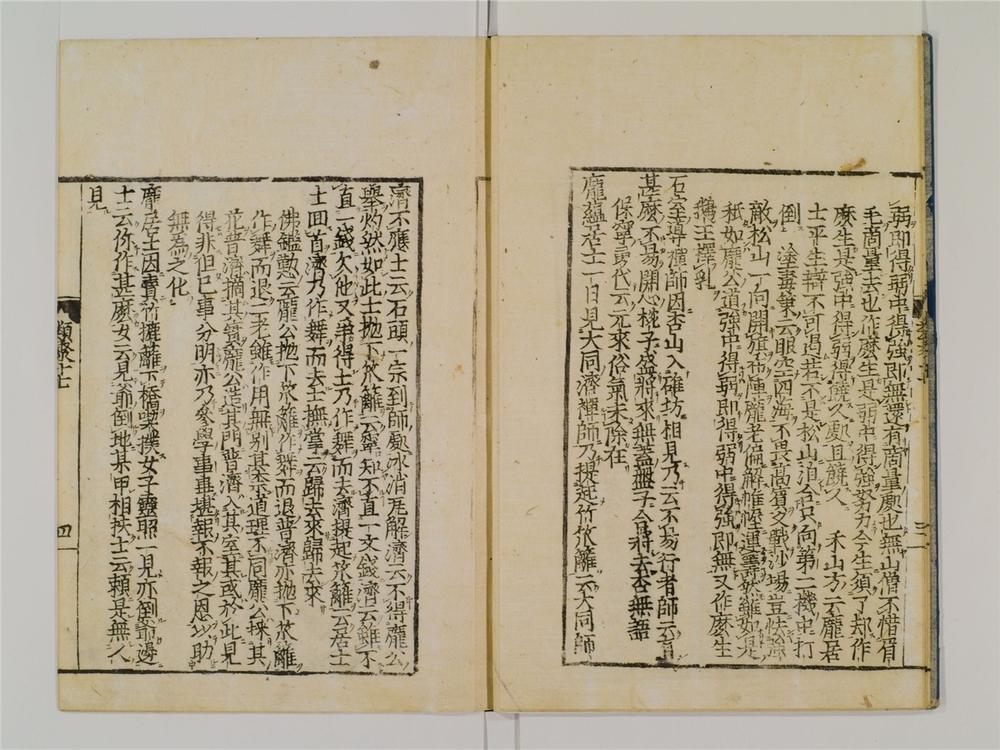 弱即得弱中得強即無還有商量處也無山僧不惜眉
毛商量去也作麼生是弱中得強努力今生須了却作
麼生是強中得弱得饒人處且饒人 禾山方云龐居
士平生辯不可遏若不是松山洎合向第二機中打
倒 塗毒策云眼空四海不畏
敵松山一向開旗布陣龐老偏解帷幄運籌妙雖如是
秖如龐公道強中得弱即得弱中得強即無又作麼生
鵝王擇乳
石室善道禪師因杏山入碓坊相見乃云不易行者師云有
甚麼不易開心椀子盛將來無蓋盤子合將去杏無語
保寧勇代云元來俗氣未除在
龐蘊居士一日見大同濟禪師乃提起竹笊籬云大同師
濟不應士云石頭一宗到師處氷消瓦解濟云不得龐公
舉灼然如此士抛下笊籬云寧知不直一文錢濟云雖不
直一錢欠他又爭得士乃作舞而去濟提起笊籬云居士
士回首濟乃作舞而去士撫掌云歸去來歸去來
佛鑑懃云龐公抛下笊籬作舞而退普濟亦抛下笊籬
作舞而退二老雖作用無別其柰道理不同龐公採其
花普濟摘其實龐公造其門普濟入其室其或於此見
得非但己事分明亦乃參學事畢堪報不報之恩少助
無為之化
龐居士因賣竹漉籬下橋喫撲女子靈照一見亦倒爺邊
士云你作甚麼女云見爺倒地某甲相扶士云賴是無人
見
類聚十七
四